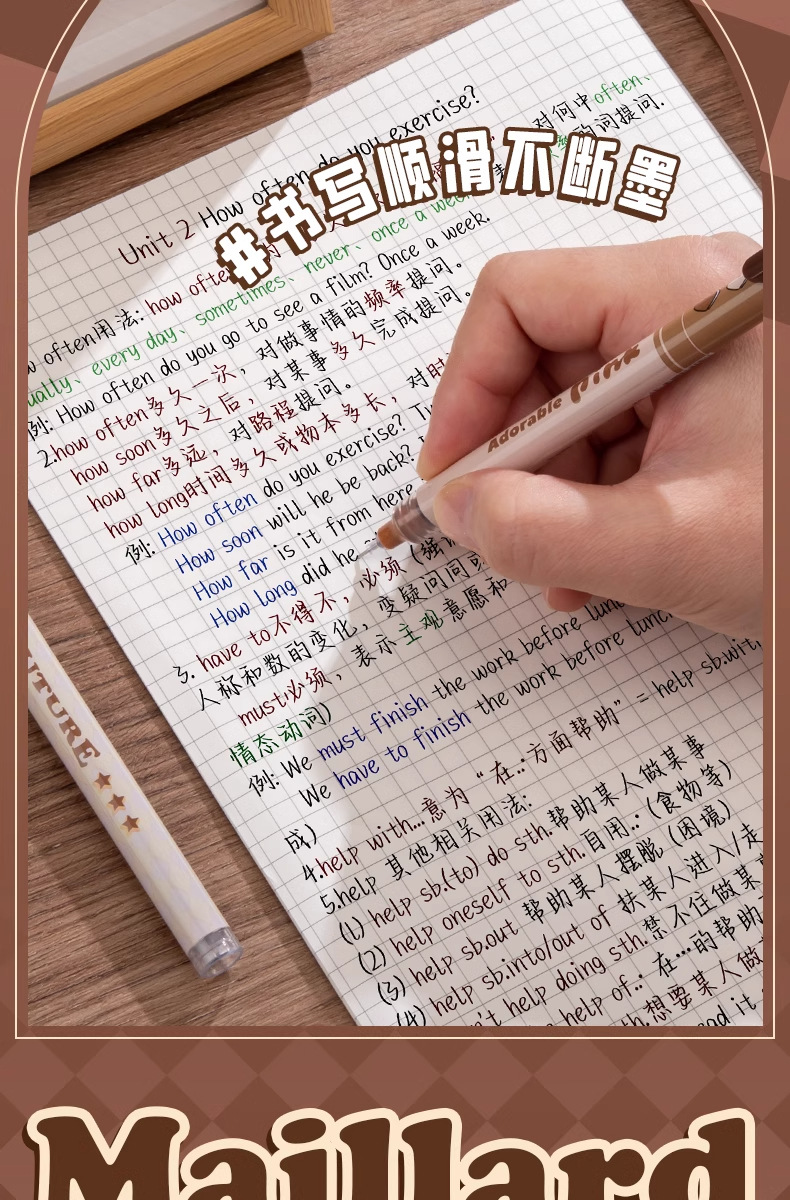 #书写顺滑不断墨
Unit 2 How often do you exercise?
often用法: how often 对何中often、
usually、every day、sometimes、never、once a week 的词提问.
例: How often do you go to see a film? Once a week.
2.how often多久一次, 对做事情的频率提问。
how soon多久之后, 对某事多久完成提问。
how far多远, 对路程提问。
how long时间多久或物本多长, 对时
例: How often do you exercise?
How soon will he be back?
How far is it from here
How long did he
3. have to不得不, 必须 (强
人称和数的变化, 变疑问问
must必须, 表示主观意愿和
情态动词)
例: We must finish the work before lunch
We have to finish the work before lunch
4.help with...意为 “在..:方面帮助” = help sb.with
成)
5.help 其他相关用法:
(1) help sb.(to) do sth.帮助某人做某事
(2) help oneself to sth.自用..: (食物等)
(3) help sb.out 帮助某人摆脱 (困境)
(4) help sb.into/out of 扶某人进入/走
help doing sth.禁不住做某
help of..: 在...的帮助
想要某人做
Adorable Pink
★★★
Maillard